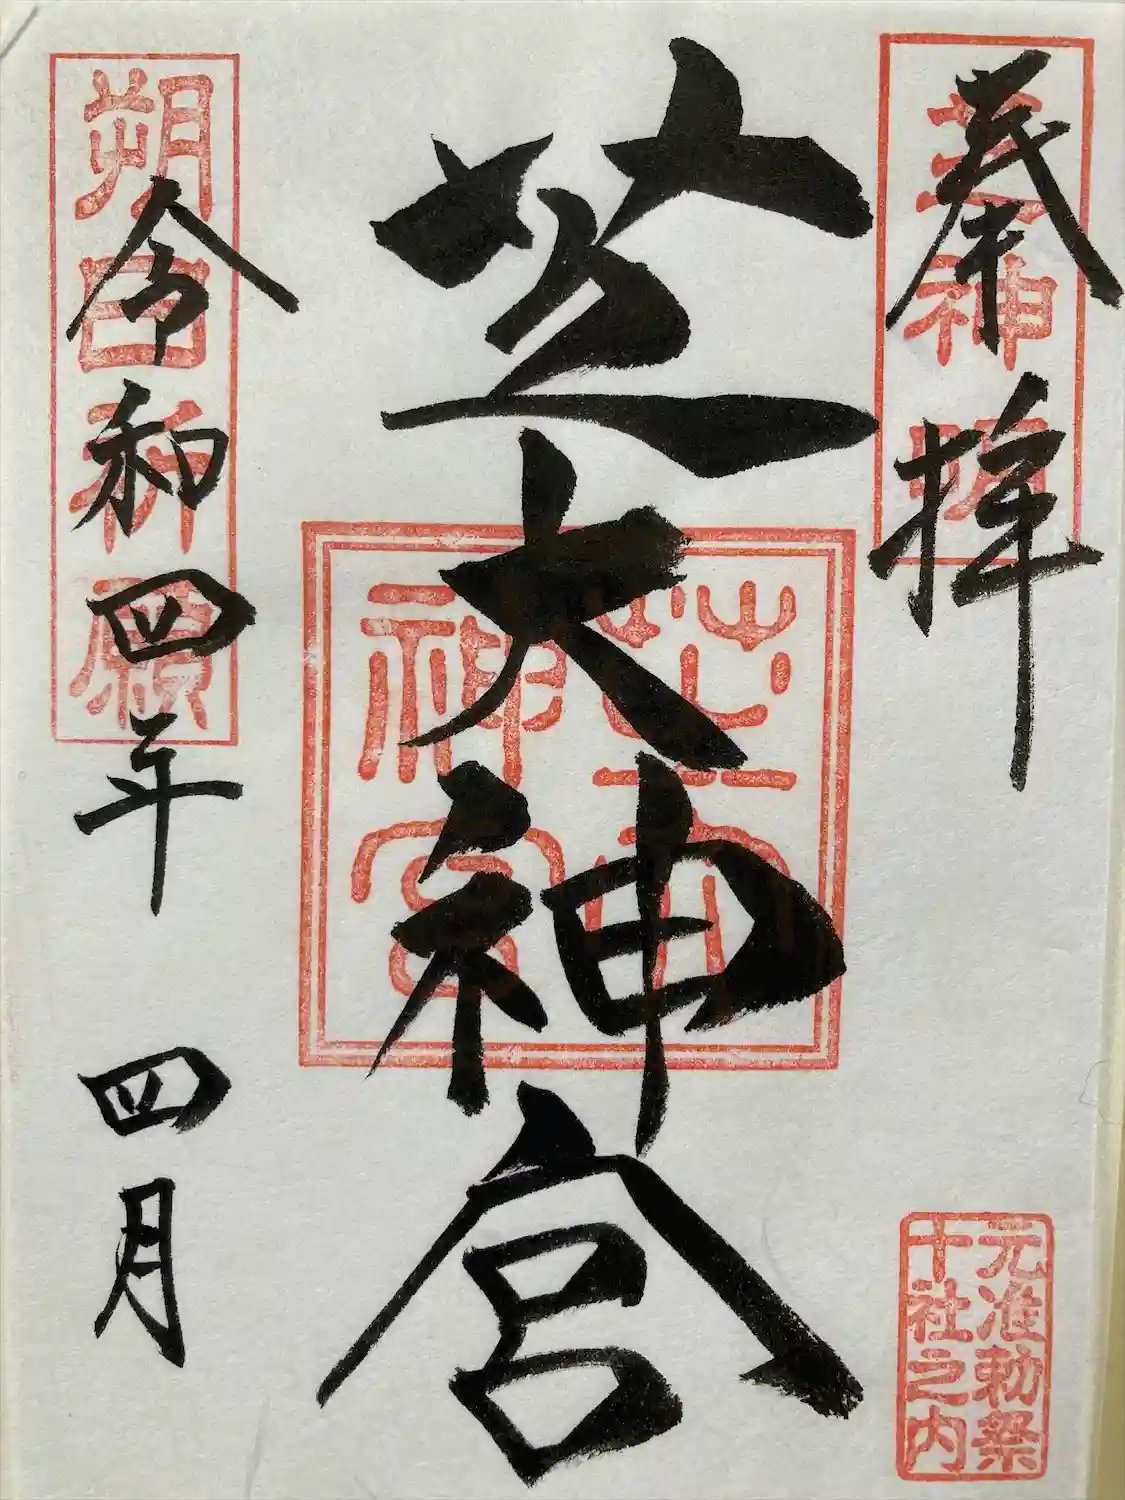 奉拝
芝神明
芝大神宮
芝大
神宮
令和四年 四月
朔日祈願
元准勅祭
十社之内